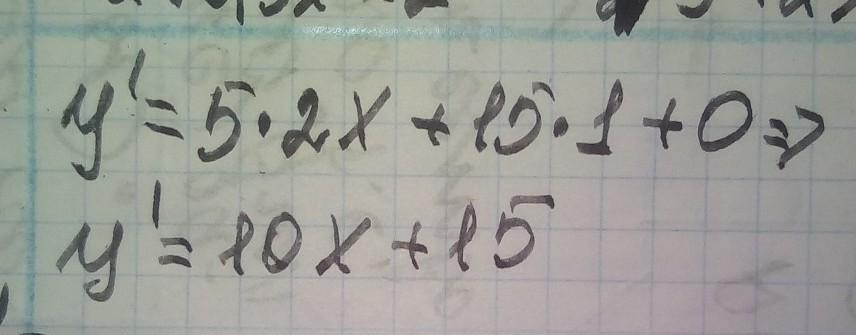 y' = 5·2x + 15·1 + 0 =>
y' = 10x + 15